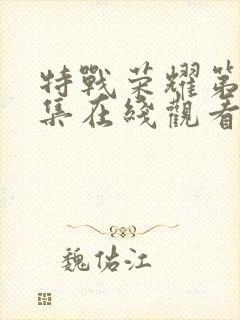 特戰荣耀第
集在綫觀看
魏佑江